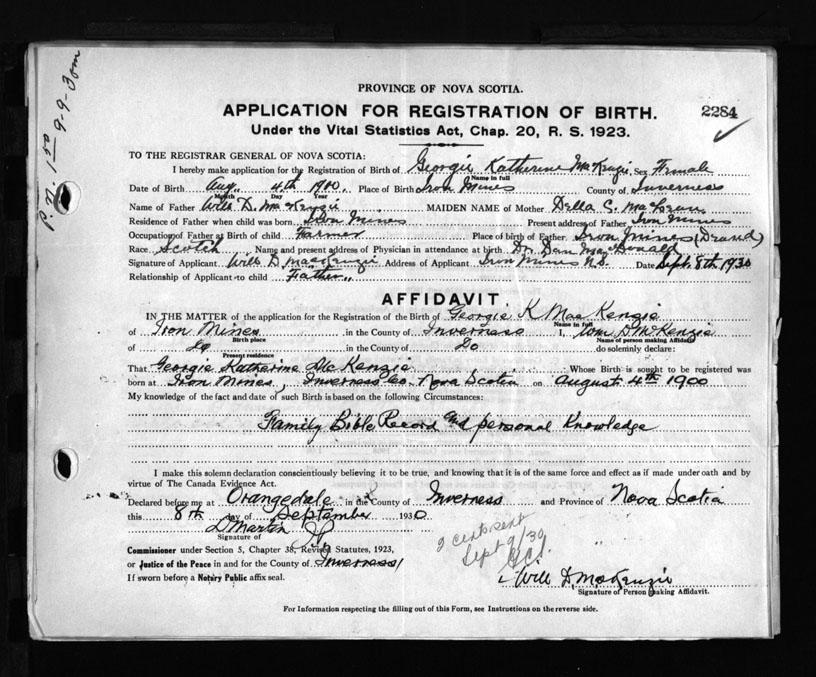 P.N. 1 50 9-9-30 m
PROVINCE OF NOVA SCOTIA.
APPLICATION FOR REGISTRATION OF BIRTH.
2284
Under the Vital Statistics Act, Chap. 20, R. S. 1923.
TO THE REGISTRAR GENERAL OF NOVA SCOTIA:
I hereby make application for the Registration of Birth of Georgie Katherine MacKenzie Sex Female
Name in full
Date of Birth Aug. 4th 1900. Place of Birth Iron Mines County of Inverness
Month Day Year
Name of Father Will D. MacKenzie MAIDEN NAME of Mother Della C. MacLean
Residence of Father when child was born Iron Mines Present address of Father Iron Mines
Occupation of Father at Birth of child Farmer Place of birth of Father Iron Mines
Race Scotch Name and present address of Physician in attendance at birth Dr. Dan MacDonald
Signature of Applicant Will D MacKenzie Address of Applicant Iron Mines N.S. Date Sept. 8th 1930
Relationship of Applicant to child Father
AFFIDAVIT
IN THE MATTER of the application for the Registration of the Birth of Georgie K MacKenzie
Name in full
of Iron Mines in the County of Inverness I, Wm D McKenzie
Birth place Name of person making Affidavit
of Do in the County of Do do solemnly declare:
Present residence
That Georgie Katharine McKenzie Whose Birth is sought to be registered was
born at Iron Mines, Inverness Co. Nova Scotia on August 4th 1900
My knowledge of the fact and date of such Birth is based on the following Circumstances:
Family Bible Record and personal Knowledge
I make this solemn declaration conscientiously believing it to be true, and knowing that it is of the same force and effect as if made under oath and by
virtue of The Canada Evidence Act.
Declared before me at Orangedale in the County of Inverness and Province of Nova Scotia
this 8th day of September 1930
D Martin JP
Signature of
2 cent sent
Sept 9/30
Commissioner under Section 5, Chapter 38, Revised Statutes, 1923,
or Justice of the Peace in and for the County of Inverness
If sworn before a Notary Public affix seal.
Will D. McKenzie
Signature of Person making Affidavit.
For Information respecting the filling out of this Form, see Instructions on the reverse side.